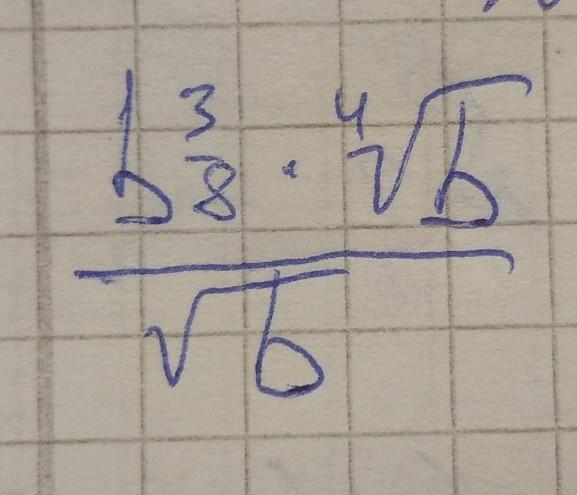 b 3/8 · ∜b
√b